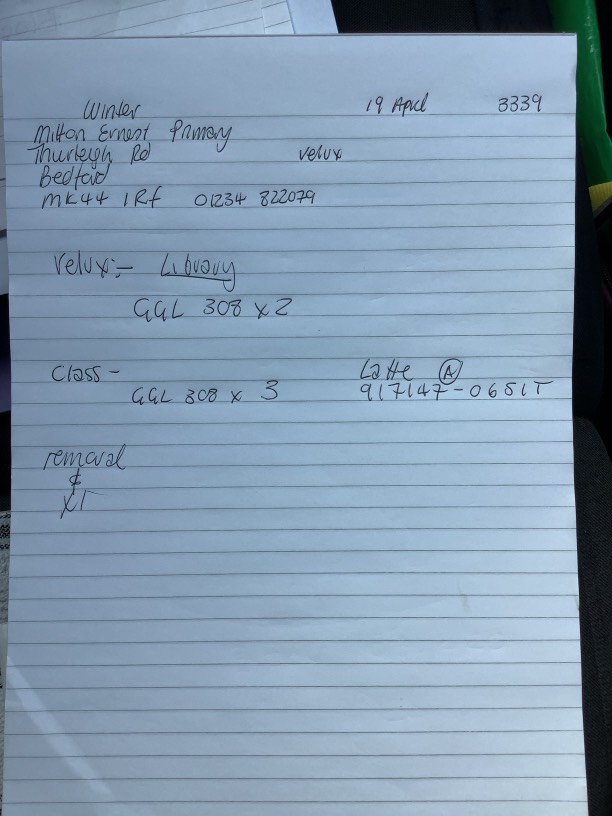 Winter 19 April 3339
Milton Ernest Primary
Thurleigh Rd velux
Bedford
MK44 1RF 01234 822079
Velux:- Library
GGL 308 x 2
Class - Latte (A)
GGL 308 x 3 917147-0651T
removal
&